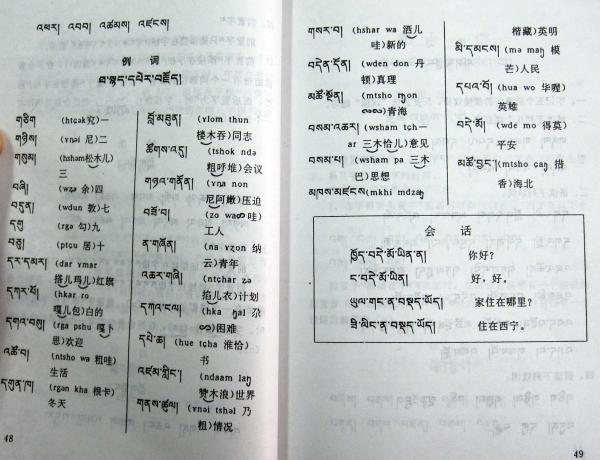 འཕར། འབབ། འཚམས། འཛངས།
例 词
ཐ་སྙད་དཔེར་བརྗོད།
གཅིག (htçək究)一
གཉིས། (ɤnəi 尼)二
གསུམ། (hshəm松木儿)
三
བཞི། (wzə 余)四
བདུན། (wdun 敦)七
དགུ (rgə 勾)九
བཅུ། (ptçu 居)十
དར་དམར། (dar ɤmar
搭儿玛儿)红旗
དཀར་པོ། (hkar ro
嘎儿包)白的
དགའ་བསུ། (rga pshu 嘎卜
思)欢迎
འཚོ་བ། (ntsho wa 粗哇)
生活
དགུན་ཁ། (rgən kha 根卡)
冬天
48
བློ་མཐུན། (ɤlom thun
楼木吞)同志
ཚོགས་འདུ། (tshok ndə
粗呼堆)会议
གཉའ་གནོན། (ɤȵa non
尼阿嫩)压迫
བཟོ་བ། (zo wa 哇)
工人
ན་གཞོན། (na ɤʐon 纳
云)青年
འཆར་གཞི། (ntçhar zə
掐儿衣)计划
དཀའ་ངལ། (hka ŋal 尕
)困难
དཔེ་ཆ། (hue tçha 淮恰)
书
འཛམ་གླིང་། (ndzam laŋ
赞木浪)世界
གནས་ཚུལ། (ɤnəi tshəl 乃
粗)情况
གསར་བ། (hshar wa 洒儿
哇)新的
བདེན་དོན། (wden don 丹
顿)真理
མཚོ་སྔོན། (mtsho ŋon
)青海
བསམ་འཆར། (wsham tçh—
ar 三木恰儿)意见
བསམ་པ། (wsham pa 三木
巴)思想
མཁས་མཛངས། (mkhi mdzaŋ
楷藏)英明
མི་དམངས། (mə maŋ 模
芒)人民
དཔའ་བོ། (hua wo 华喔)
英雄
བདེ་མོ། (wde mo 得莫)
平安
མཚོ་བྱང་། (mtsho çaŋ 措
香)海北
会 话
ཁྱོད་བདེ་མོ་ཡིན་ན། 你好?
ང་བདེ་མོ་ཡིན། 好,好。
ཡུལ་གང་ན་བསྡད་ཡོད། 家住在哪里?
ཟི་ལིང་ན་བསྡད་ཡོད། 住在西宁。
49